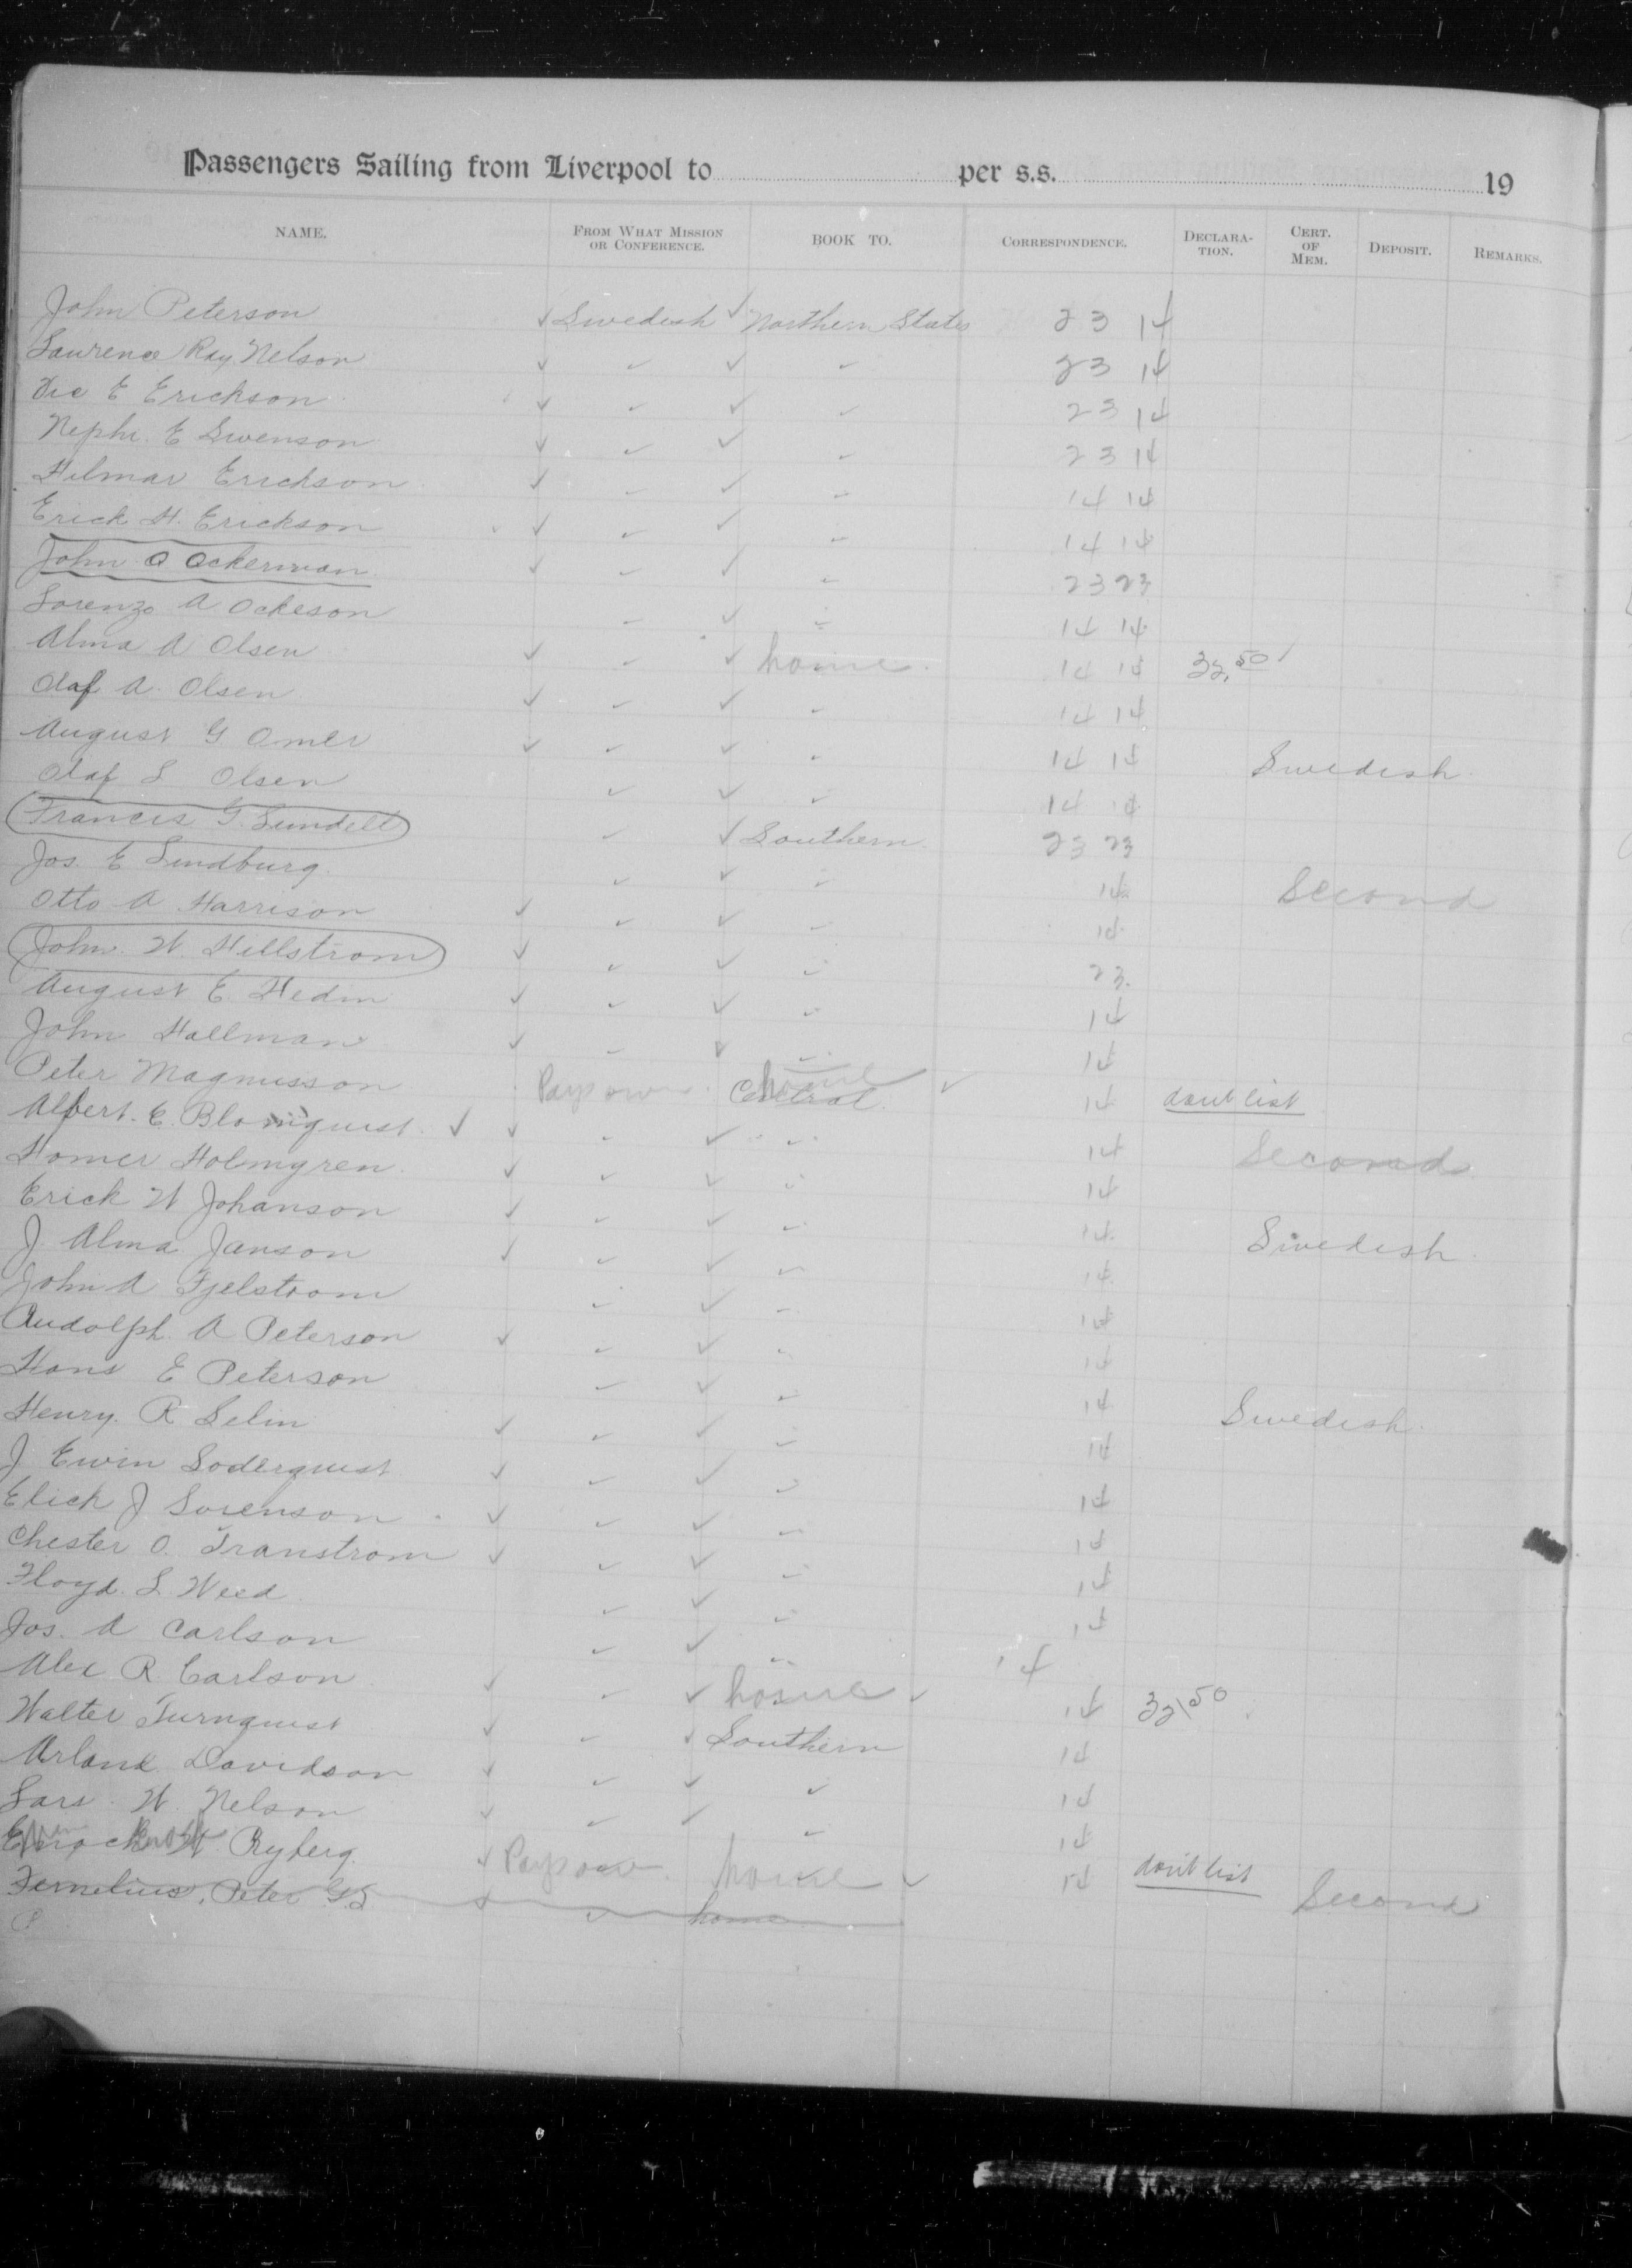 Passengers Sailing from Liverpool to per s.s. 19
NAME. FROM WHAT MISSION OR CONFERENCE. BOOK TO. CORRESPONDENCE. DECLARA-TION. CERT. OF MEM. DEPOSIT. REMARKS.
John Peterson ✓ Swedish ✓ Northern States 23 14
Laurence Ray Nelson ✓ ✓ ✓ ✓ 23 14
Vic E Erickson ✓ ✓ ✓ ✓ 23 14
Nephi E Swenson ✓ ✓ ✓ ✓ 23 14
Hilmar Erickson ✓ ✓ ✓ ✓ 14 14
Erick H. Erickson ✓ ✓ ✓ ✓ 14 14
John O Ockerman ✓ ✓ ✓ ✓ 23 23
Lorenzo A Ockeson ✓ ✓ ✓ 14 14
Alma A Olsen ✓ ✓ ✓ home. 14 14 32.50
Olaf A. Olsen ✓ ✓ ✓ ✓ 14 14
August G Omer ✓ ✓ ✓ ✓ 14 14 Swedish
Olaf L Olsen ✓ ✓ ✓ 14 14
Francis G. Lundell ✓ ✓ Southern 23 23
Jos. E Lindburg ✓ ✓ ✓ 14 Second
Otto A Harrison ✓ ✓ ✓ ✓ 14
John. W. Hillstrom ✓ ✓ ✓ ✓ 23.
August E. Hedin ✓ ✓ ✓ ✓ 14
John Hallman ✓ ✓ ✓ ✓ 14
Peter Magnusson Pays own home Central ✓ 14 dont list
Albert. E. Blomquist ✓ ✓ ✓ ✓ ✓ 14 Second
Homer Holmgren ✓ ✓ ✓ ✓ 14
Erick W Johanson ✓ ✓ ✓ ✓ 14 Swedish
J. Alma Janson ✓ ✓ ✓ ✓ 14
John A Fjelstrom ✓ ✓ ✓ 14
Rudolph. A Peterson ✓ ✓ ✓ ✓ 14
Hans E Peterson ✓ ✓ ✓ 14 Swedish
Henry. R Selin ✓ ✓ ✓ ✓ 14
J Ewin Soderquist ✓ ✓ ✓ ✓ 14
Elick J Sorenson ✓ ✓ ✓ ✓ 14
Chester O. Transtrom ✓ ✓ ✓ ✓ 14
Floyd. S. Weed ✓ ✓ ✓ 14
Jos. A Carlson ✓ ✓ ✓ 14
Alec R. Carlson ✓ ✓ ✓ home ✓ 14 32.50
Walter Turnquist ✓ ✓ ✓ Southern 14
Arland Davidson ✓ ✓ ✓ ✓ 14
Lars. W. Nelson ✓ ✓ ✓ ✓ 14
Enoch Ryberg ✓ Pays own home ✓ 14 don't list
Fernelius, Peter G.S ✓ ✓ home Second